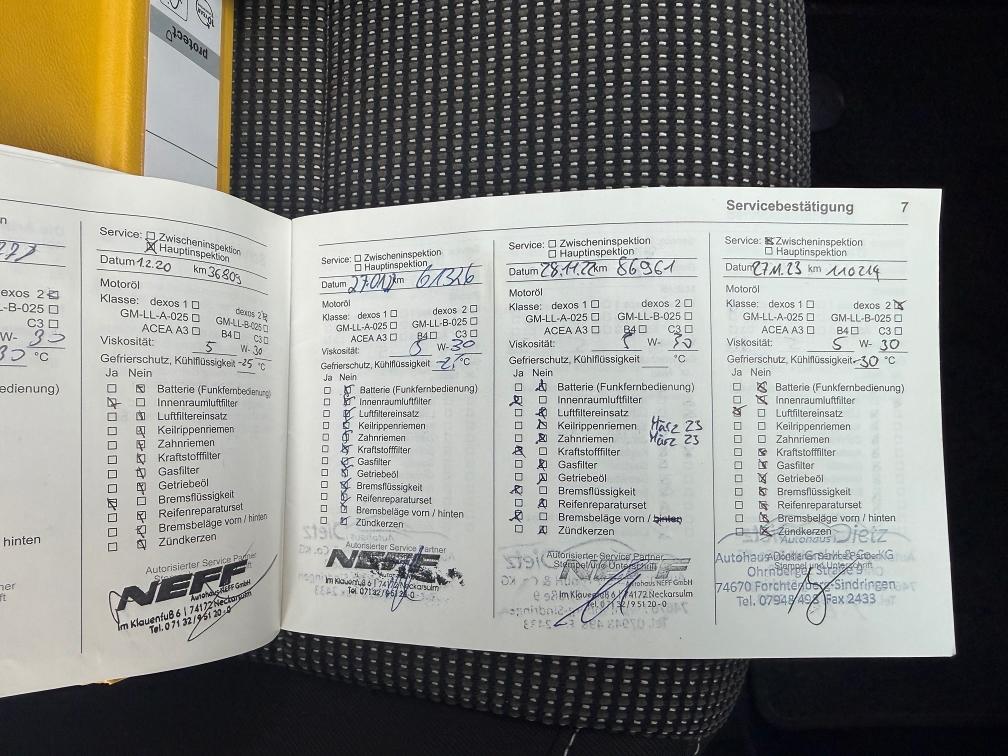 protect
Servicebestätigung 7
exos 2
L-B-025
C3
W- 30
°C
edienung)
hinten
Service: Zwischeninspektion
Hauptinspektion
Datum 1.2.20 km 36809
Motoröl
Klasse: dexos 1 dexos 2
GM-LL-A-025 GM-LL-B-025
ACEA A3 B4 C3
Viskosität: 5 W- 30
Gefrierschutz, Kühlflüssigkeit -25 °C
Ja Nein
Batterie (Funkfernbedienung)
Innenraumluftfilter
Luftfiltereinsatz
Keilrippenriemen
Zahnriemen
Kraftstofffilter
Gasfilter
Getriebeöl
Bremsflüssigkeit
Reifenreparaturset
Bremsbeläge vorn / hinten
Zündkerzen
Autorisierter Service Partner
NEFF
Autohaus NEFF GmbH
Im Klauenfuß 6 | 74172 Neckarsulm
Tel. 0 71 32 / 9 51 20 - 0
Service: Zwischeninspektion
Hauptinspektion
Datum km 61326
Motoröl
Klasse: dexos 1 dexos 2
GM-LL-A-025 GM-LL-B-025
ACEA A3 B4 C3
Viskosität: W- 30
Gefrierschutz, Kühlflüssigkeit °C
Ja Nein
Batterie (Funkfernbedienung)
Innenraumluftfilter
Luftfiltereinsatz
Keilrippenriemen
Zahnriemen
Kraftstofffilter
Gasfilter
Getriebeöl
Bremsflüssigkeit
Reifenreparaturset
Bremsbeläge vorn / hinten
Zündkerzen
Autorisierter Service Partner
NEFF
Im Klauenfuß 6 | 74172 Neckarsulm
Tel. 0 71 32 / 9 51 20 - 0
Service: Zwischeninspektion
Hauptinspektion
Datum 28.11.22 km 86961
Motoröl
Klasse: dexos 1 dexos 2
GM-LL-A-025 GM-LL-B-025
ACEA A3 B4 C3
Viskosität: 5 W- 30
Gefrierschutz, Kühlflüssigkeit °C
Ja Nein
Batterie (Funkfernbedienung)
Innenraumluftfilter
Luftfiltereinsatz
Keilrippenriemen März 23
Zahnriemen März 23
Kraftstofffilter
Gasfilter
Getriebeöl
Bremsflüssigkeit
Reifenreparaturset
Bremsbeläge vorn / hinten
Zündkerzen
Autorisierter Service Partner
Stempel und Unterschrift
NEFF
Autohaus NEFF GmbH
Im Klauenfuß 6 | 74172 Neckarsulm
Tel. 0 71 32 / 9 51 20 - 0
Service: Zwischeninspektion
Hauptinspektion
Datum 27.11.23 km 110214
Motoröl
Klasse: dexos 1 dexos 2
GM-LL-A-025 GM-LL-B-025
ACEA A3 B4 C3
Viskosität: 5 W- 30
Gefrierschutz, Kühlflüssigkeit -30 °C
Ja Nein
Batterie (Funkfernbedienung)
Innenraumluftfilter
Luftfiltereinsatz
Keilrippenriemen
Zahnriemen
Kraftstofffilter
Gasfilter
Getriebeöl
Bremsflüssigkeit
Reifenreparaturset
Bremsbeläge vorn / hinten
Zündkerzen
Dietz
Autohaus Dietz GmbH & Co. KG
Stempel und Unterschrift
74670 Forchtenberg-Sindringen
Tel. 07948 493 Fax 2433